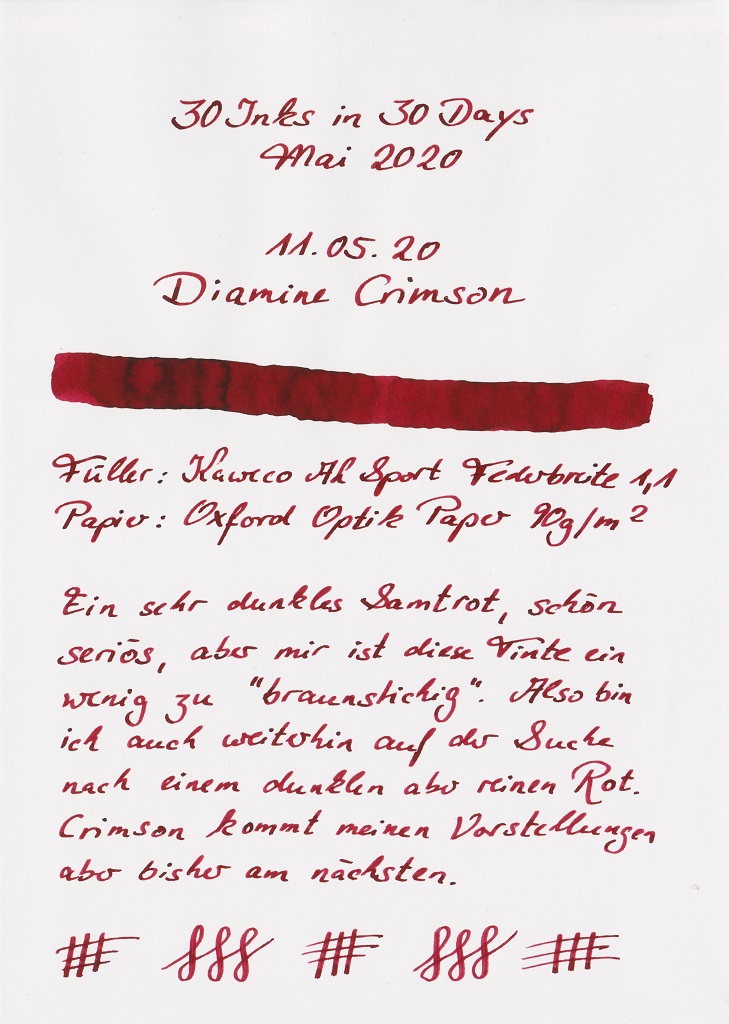 30 Inks in 30 Days
Mai 2020
11.05.20
Diamine Crimson
Füller: Kaweco Al Sport Federbreite 1,1
Papier: Oxford Optik Paper 90g/m²
Ein sehr dunkles Samtrot, schön
seriös, aber mir ist diese Tinte ein
wenig zu "braunstichig". Also bin
ich auch weiterhin auf der Suche
nach einem dunklen aber reinen Rot.
Crimson kommt meinen Vorstellungen
aber bisher am nächsten.